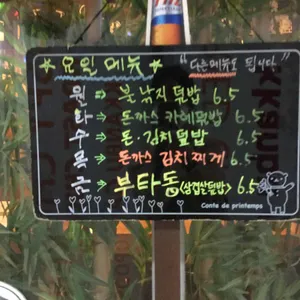 ★요일메뉴★ "다른메뉴도 됩니다"
월 ⇒ 불낚지덮밥 6.5
화 ⇒ 돈까스카레덮밥 6.5
수 ⇒ 돈.김치덮밥 6.5
목 ⇒ 돈까스 김치찌개 6.5
금 ⇒ 부타동(삼겹살덮밥) 6.5
Conte de printemps